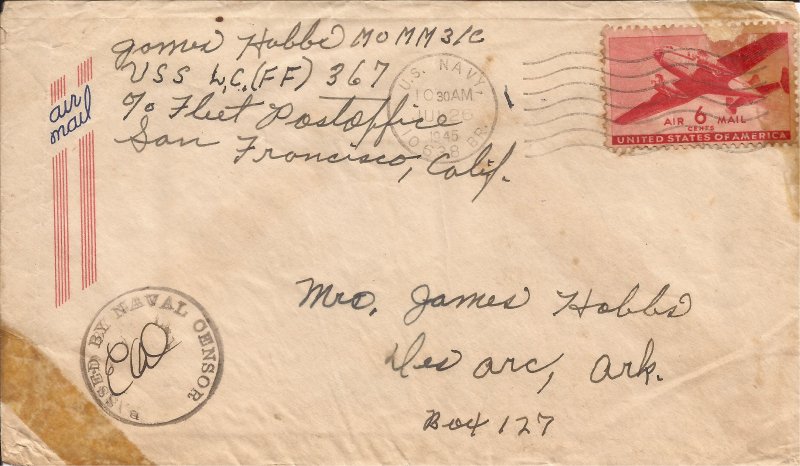 James Hobbs MOMM3/C
USS L.C.(FF) 367
℅ Fleet Postoffice
San Francisco, Calif.
air
mail
U.S. NAVY
10 30 AM
26
1945
10638 BR.
AIR 6 MAIL
CENTS
UNITED STATES OF AMERICA
Mrs. James Hobbs
Des arc, Ark.
Box 127
PASSED BY NAVAL CENSOR